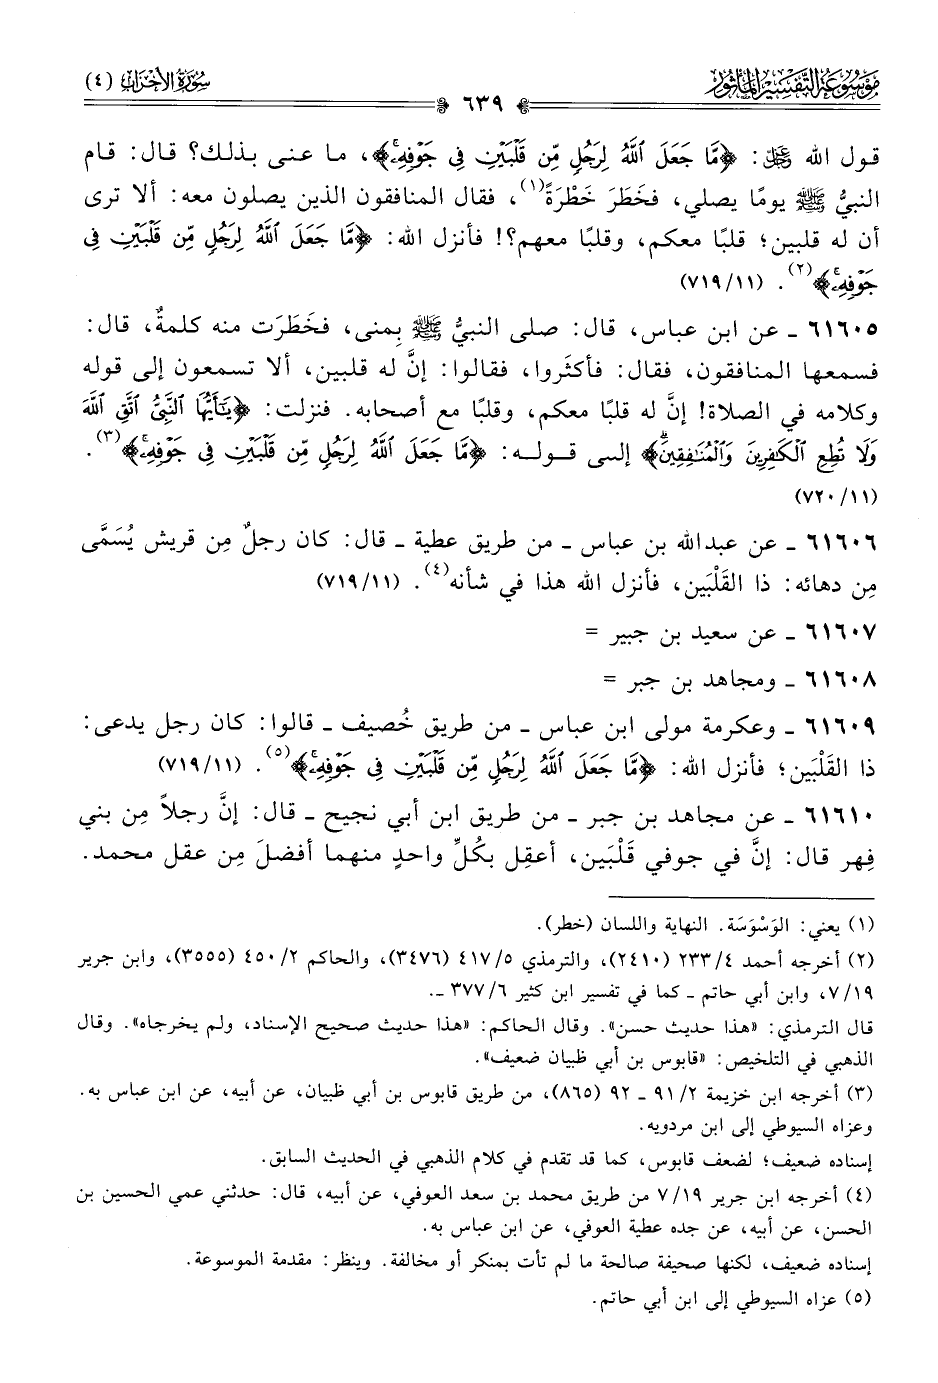 موسوعة التفسير المأثور
سورة الأحزاب (٤)
٦٣٩
قول الله ﷿: ﴿مَّا جَعَلَ ٱللَّهُ لِرَجُلٍ مِّن قَلْبَيْنِ فِي جَوْفِهِۦ﴾، ما عنى بذلك؟ قال: قام
النبيُّ ﷺ يومًا يصلي، فخَطَرَ خَطْرَةً(١)، فقال المنافقون الذين يصلون معه: ألا ترى
أن له قلبين؛ قلبًا معكم، وقلبًا معهم؟! فأنزل الله: ﴿مَّا جَعَلَ ٱللَّهُ لِرَجُلٍ مِّن قَلْبَيْنِ فِي
جَوْفِهِۦ﴾(٢). (٧١٩/١١)
٦١٦٠٥ ـ عن ابن عباس، قال: صلى النبيُّ ﷺ بِمنى، فخَطَرَت منه كلمةٌ، قال:
فسمعها المنافقون، فقال: فأكثَروا، فقالوا: إنَّ له قلبين، ألا تسمعون إلى قوله
وكلامه في الصلاة! إنَّ له قلبًا معكم، وقلبًا مع أصحابه. فنزلت: ﴿يَٰٓأَيُّهَا ٱلنَّبِيُّ ٱتَّقِ ٱللَّهَ
وَلَا تُطِعِ ٱلْكَٰفِرِينَ وَٱلْمُنَٰفِقِينَۗ﴾ إلى قولـه: ﴿مَّا جَعَلَ ٱللَّهُ لِرَجُلٍ مِّن قَلْبَيْنِ فِي جَوْفِهِۦ﴾(٣).
(٧٢٠/١١)
٦١٦٠٦ ـ عن عبدالله بن عباس ـ من طريق عطية ـ قال: كان رجلٌ مِن قريش يُسَمَّى
مِن دهائه: ذا القَلْبَين، فأنزل الله هذا في شأنه(٤). (٧١٩/١١)
٦١٦٠٧ ـ عن سعيد بن جبير =
٦١٦٠٨ ـ ومجاهد بن جبر =
٦١٦٠٩ ـ وعكرمة مولى ابن عباس ـ من طريق خُصيف ـ قالوا: كان رجل يدعى:
ذا القَلْبَين؛ فأنزل الله: ﴿مَّا جَعَلَ ٱللَّهُ لِرَجُلٍ مِّن قَلْبَيْنِ فِي جَوْفِهِۦ﴾(٥). (٧١٩/١١)
٦١٦١٠ ـ عن مجاهد بن جبر ـ من طريق ابن أبي نجيح ـ قال: إنَّ رجلاً مِن بني
فِهر قال: إنَّ في جوفي قَلْبَين، أعقِل بكُلِّ واحدٍ منهما أفضلَ مِن عقل محمد.
(١) يعني: الوَسْوَسَة. النهاية واللسان (خطر).
(٢) أخرجه أحمد ٢٣٣/٤ (٢٤١٠)، والترمذي ٤١٧/٥ (٣٤٧٦)، والحاكم ٤٥٠/٢ (٣٥٥٥)، وابن جرير
٧/١٩، وابن أبي حاتم ـ كما في تفسير ابن كثير ٣٧٧/٦ ـ.
قال الترمذي: «هذا حديث حسن». وقال الحاكم: «هذا حديث صحيح الإسناد، ولم يخرجاه». وقال
الذهبي في التلخيص: «قابوس بن أبي ظبيان ضعيف».
(٣) أخرجه ابن خزيمة ٩١/٢ ـ ٩٢ (٨٦٥)، من طريق قابوس بن أبي ظبيان، عن أبيه، عن ابن عباس به.
وعزاه السيوطي إلى ابن مردويه.
إسناده ضعيف؛ لضعف قابوس، كما قد تقدم في كلام الذهبي في الحديث السابق.
(٤) أخرجه ابن جرير ٧/١٩ من طريق محمد بن سعد العوفي، عن أبيه، قال: حدثني عمي الحسين بن
الحسن، عن أبيه، عن جده عطية العوفي، عن ابن عباس به.
إسناده ضعيف، لكنها صحيفة صالحة ما لم تأت بمنكر أو مخالفة. وينظر: مقدمة الموسوعة.
(٥) عزاه السيوطي إلى ابن أبي حاتم.